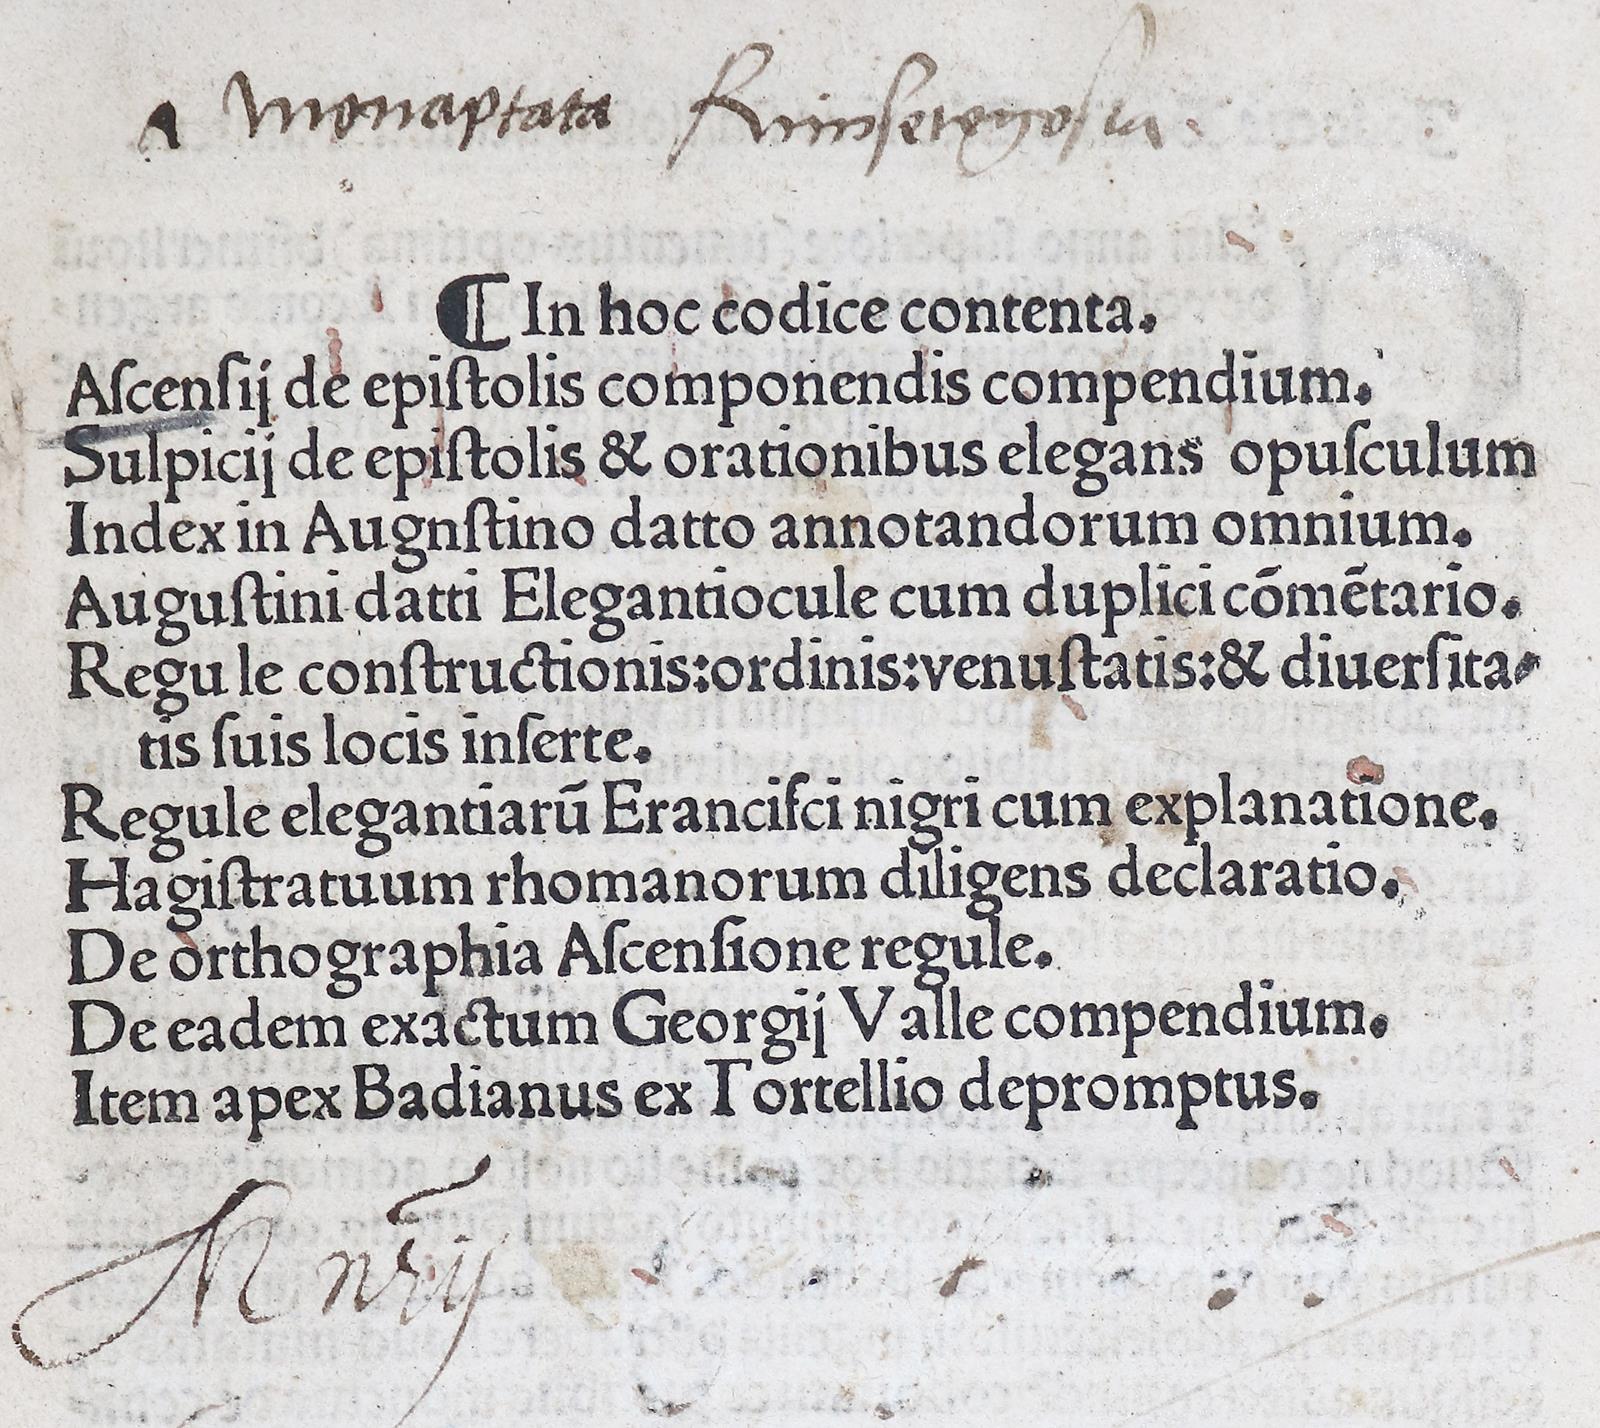 ¶ In hoc codice contenta.
Aſcenſij de epiſtolis componendis compendium.
Sulpicij de epiſtolis & orationibus elegans opuſculum
Index in Augnſtino datto annotandorum omnium.
Auguſtini datti Elegantiocule cum duplici cōmētario.
Regu le conſtructionis:ordinis:venuſtatis:& diuerſita-
tis ſuis locis inſerte.
Regule elegantiarū Eranciſci nigri cum explanatione.
Hagiſtratuum rhomanorum diligens declaratio.
De orthographia Aſcenſione regule.
De eadem exactum Georgij Valle compendium.
Item apex Badianus ex Tortellio depromptus.